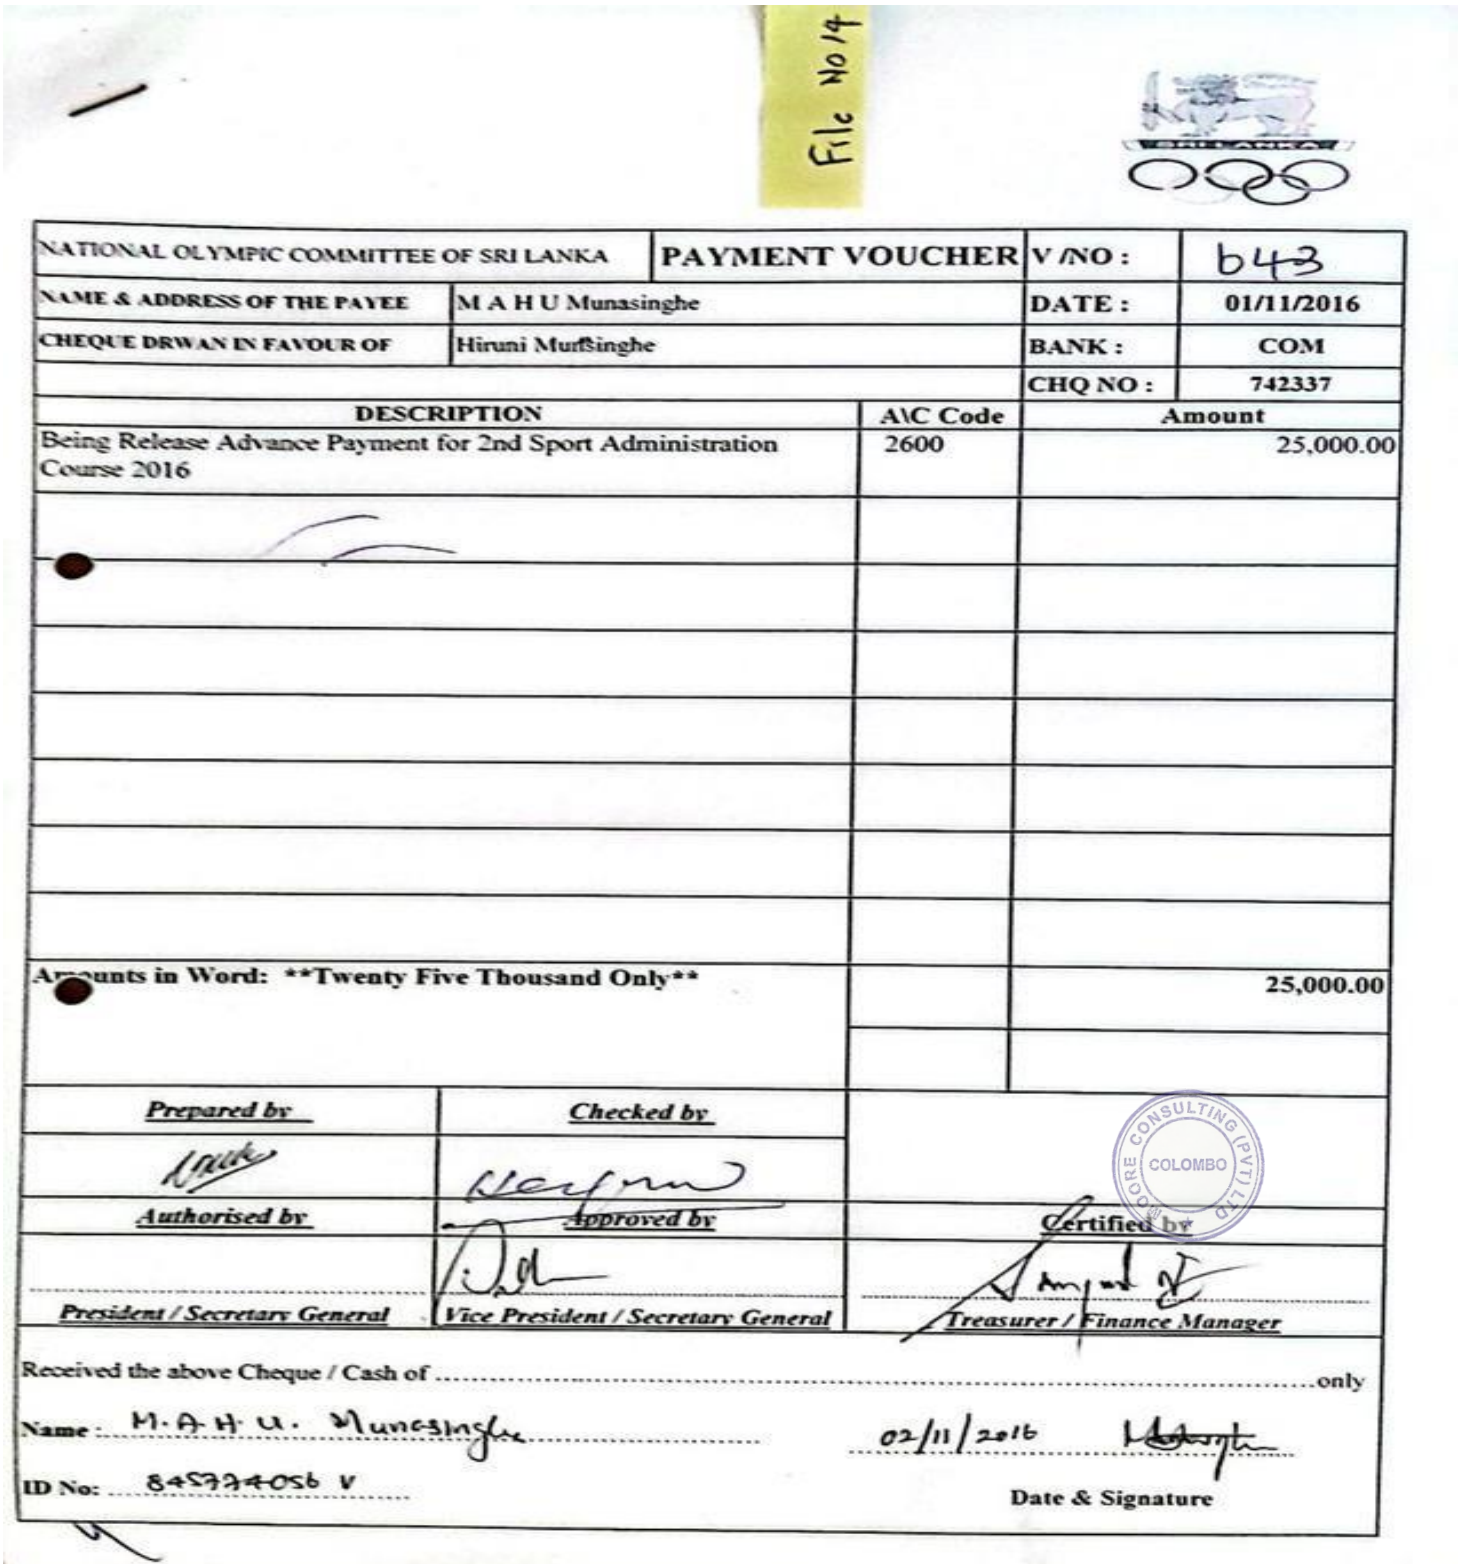 File No 14
SRI LANKA
NATIONAL OLYMPIC COMMITTEE OF SRI LANKA PAYMENT VOUCHER V /NO : 643
NAME & ADDRESS OF THE PAYEE M A H U Munasinghe DATE : 01/11/2016
CHEQUE DRWAN IN FAVOUR OF Hiruni BANK : COM
CHQ NO : 742337
DESCRIPTION A\C Code Amount
Being Release Advance Payment for 2nd Sport Administration 2600 25,000.00
Course 2016
Amounts in Word: **Twenty Five Thousand Only** 25,000.00
Prepared by Checked by
MOORE CONSULTING (PVT) LTD
COLOMBO
Authorised by Approved by Certified by
President / Secretary General Vice President / Secretary General Treasurer / Finance Manager
Received the above Cheque / Cash of only
Name : M.A.H.U. Munasinghe 02/11/2016
ID No: 845774056 V
Date & Signature